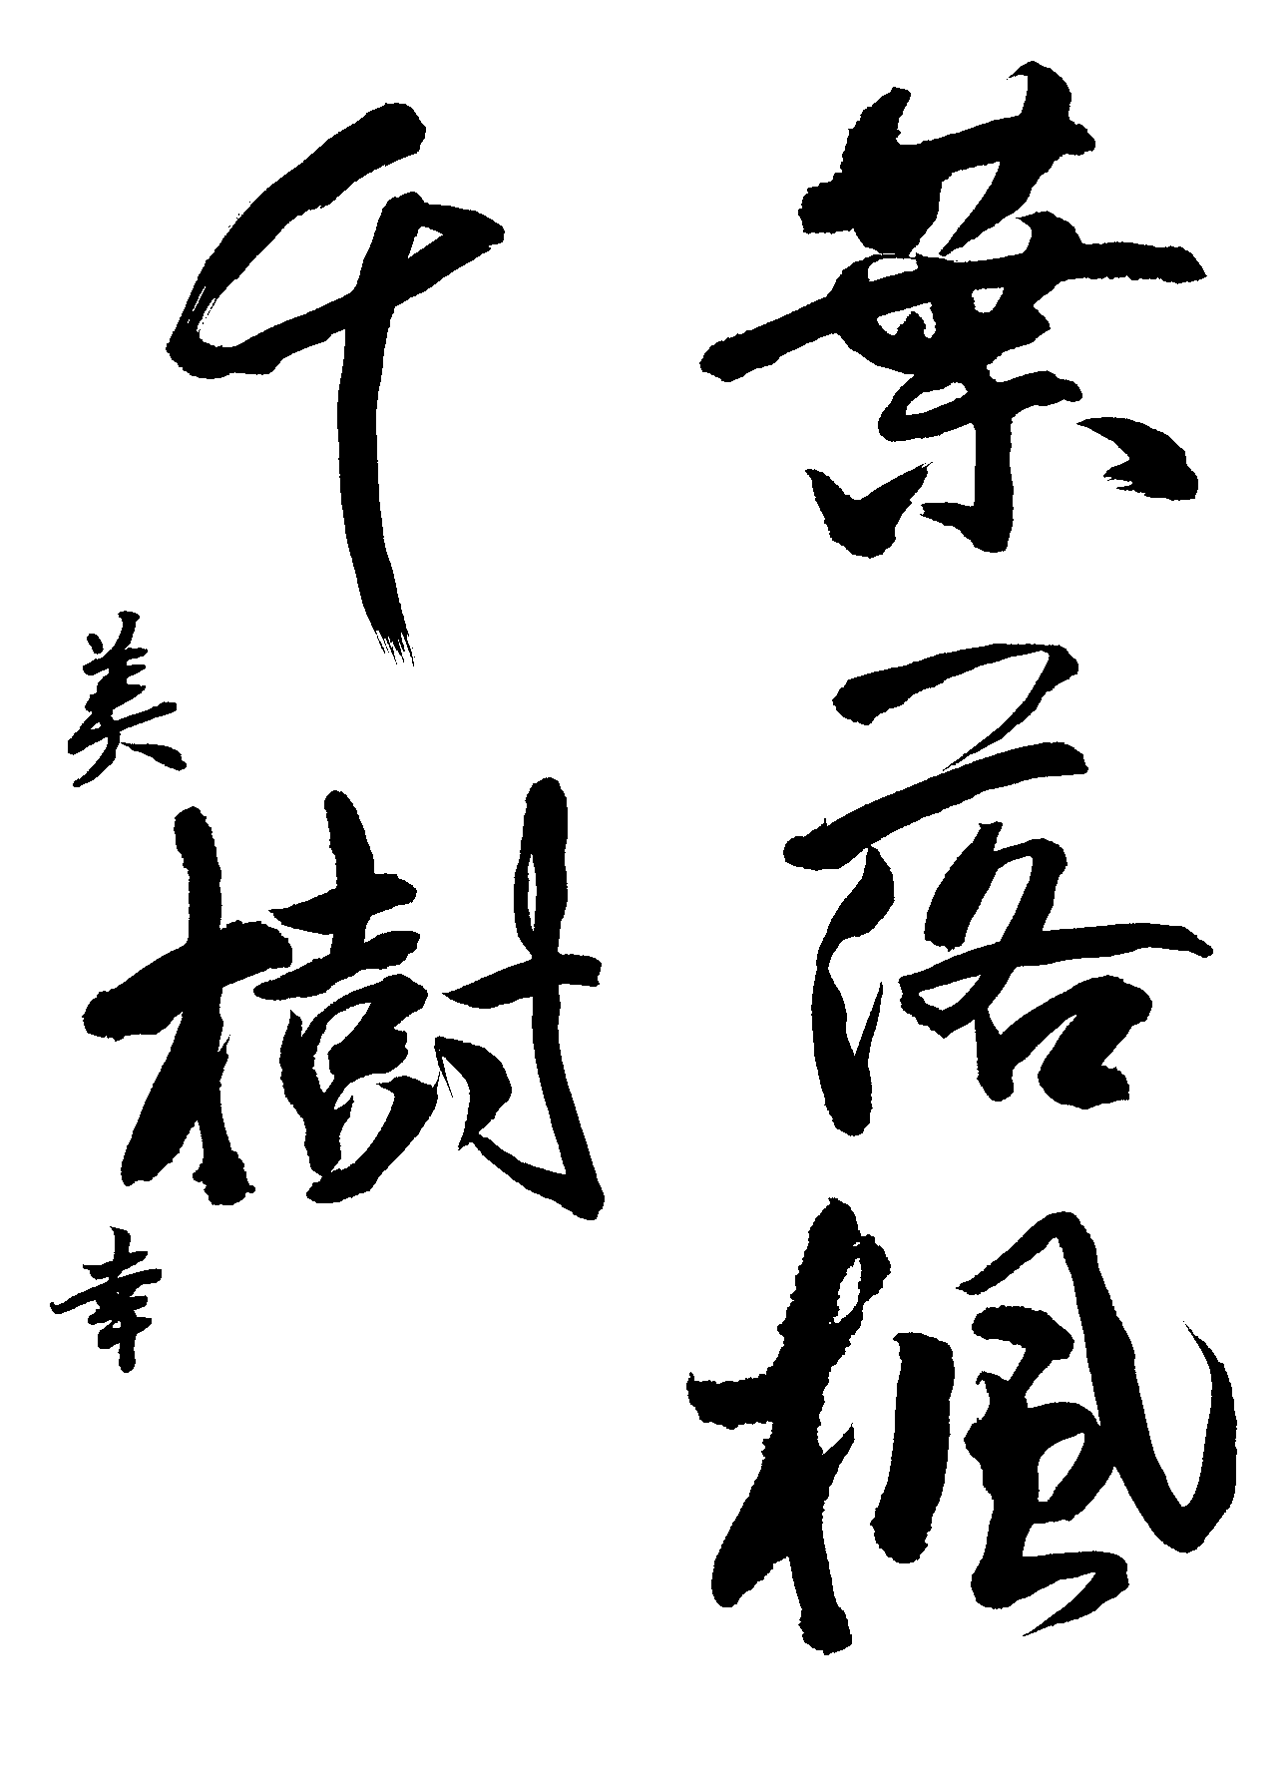 葉落楓
千樹
美幸